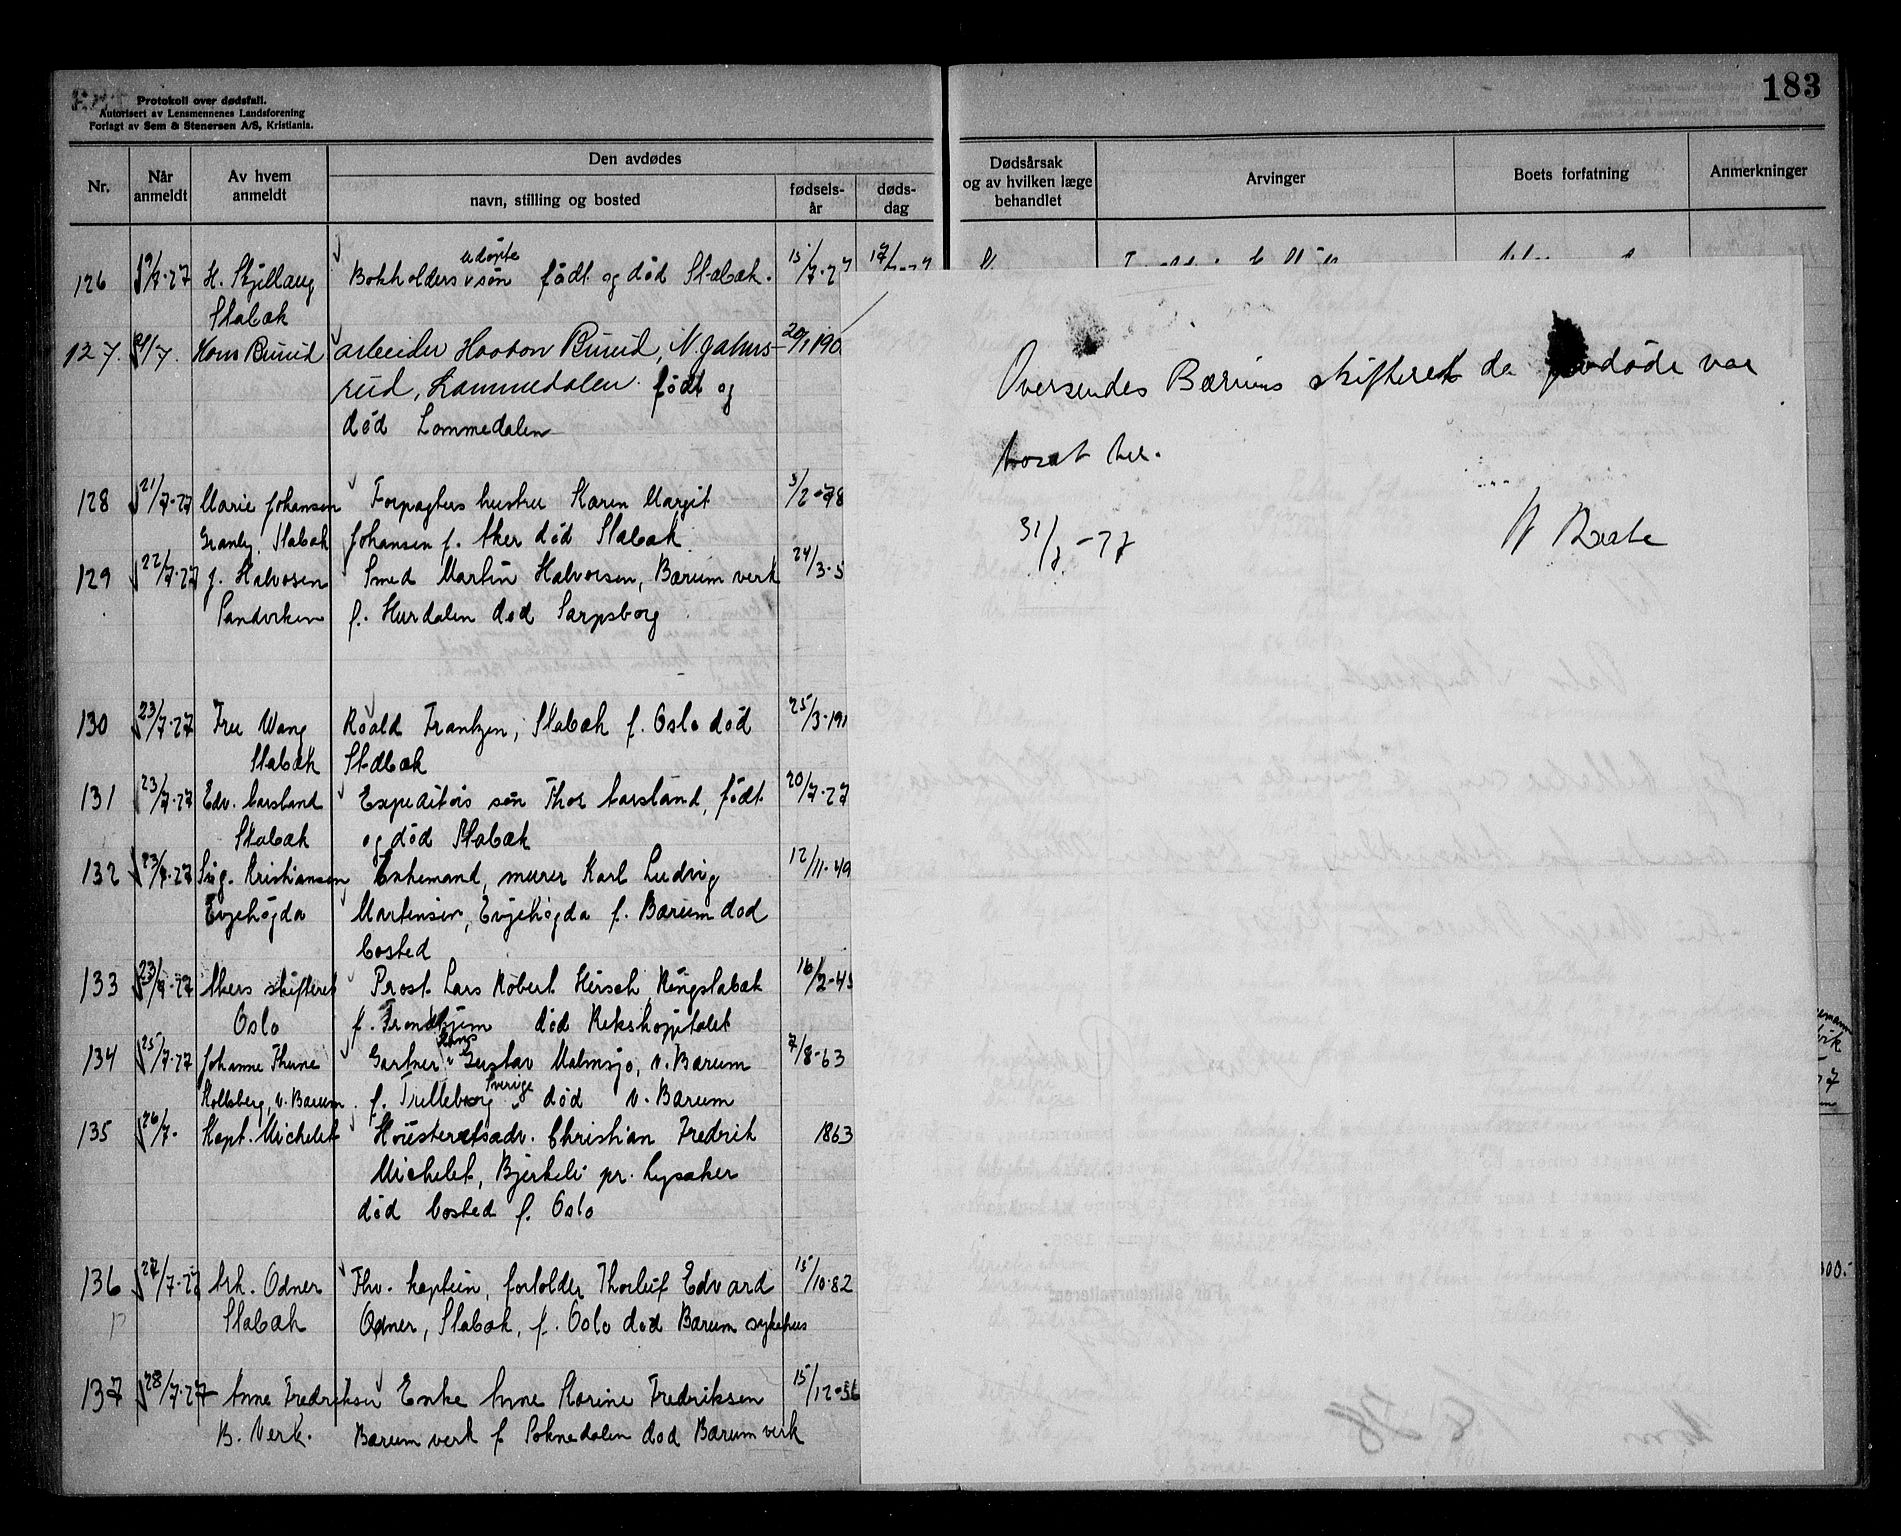 183
Protokoll over dødsfall.
Autorisert av Lensmennenes Landsforening
Forlagt av Sem & Stenersen A/S, Kristiania.
Nr.
Når anmeldt
Av hvem anmeldt
Den avdødes
navn, stilling og bosted
fødsels-år
døds-dag
Dødsårsak og av hvilken læge behandlet
Arvinger
Boets forfatning
Anmerkninger
126 19/7-27 H. Skjellaug Bokholders udøpte søn født og død Stabæk. 15/7-27
Stabæk
127. 21/7. Hans Burud arbeider Haakon Burud, N. Jahrs- 20/1 190
rud, Lommedalen. født og
død Lommedalen
128 21/7-27 Marie Johansen Forpagters hustru Karen Margit 3/2-78
Granly. Stabæk Johansen f. Aker død Stabæk
129 22/7-27 J. Halvosen Smed Martin Halvorsen, Bærum verk 24/3-5
Sandviken f. Hurdalen død Sarpsborg
130 23/7-27 Fru Wang Roald Frantzen, Stabæk f. Oslo død 25/3-191
Stabæk Stabæk
131 23/7-27 Edv. Carsland Expeditørs søn Thor Carsland, født 20/7-27
Stabæk og død Stabæk
132 23/7-27 Sig. Kristiansen, Enkemand, murer Karl Ludvig 12/11-49
Evjehøgda Martinsen, Evjehøgda f. Bærum død
bosted
133 23/7-27 Akers skifteret Prost Lars Robert Hirsch, Ringstabæk 16/2-45
Oslo f. Trondhjem død Rikshospitalet
134 25/7-27 Johanne Thune Gartner Hans Gustav Malmsjø, v. Bærum 7/8-63
Kolsberg, v. Bærum. f. Trelleborg Sverige død v. Bærum
135 26/7- Kapt. Michelet Høiesteretsadv. Christian Fredrik 1863
Michelet, Bjerkeli pr. Lysaker
død bosted f. Oslo
136 27/7-27 Ark. Odner Fhv. kaptein, forvalder Thorleif Edvard 15/10-82
Stabæk Odner, Stabæk, f. Oslo død Bærum sykehus
137 28/7-27 Anne Fredriksen Enke Anne Karine Fredriksen 15/12-56
B. Verk. Bærum verk f Soknedalen død Bærum verk
Oversendes Bærums skifteret da avdøde var
bosat her.
31/7-77